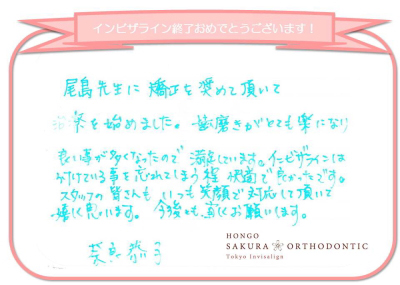 インビザライン終了おめでとうございます！
尾島先生に矯正を奨めて頂いて
を始めました。歯磨きがとても楽になり
良い事が多くなったので満足しています。インビザラインは
付けている事を忘れてしまう程快適で良かったです。
スタッフの皆さんもいつも笑顔で対応して頂いて
嬉しく思います。今後も宜しくお願います。
HONGO
SAKURA ORTHODONTIC
Tokyo Invisalign